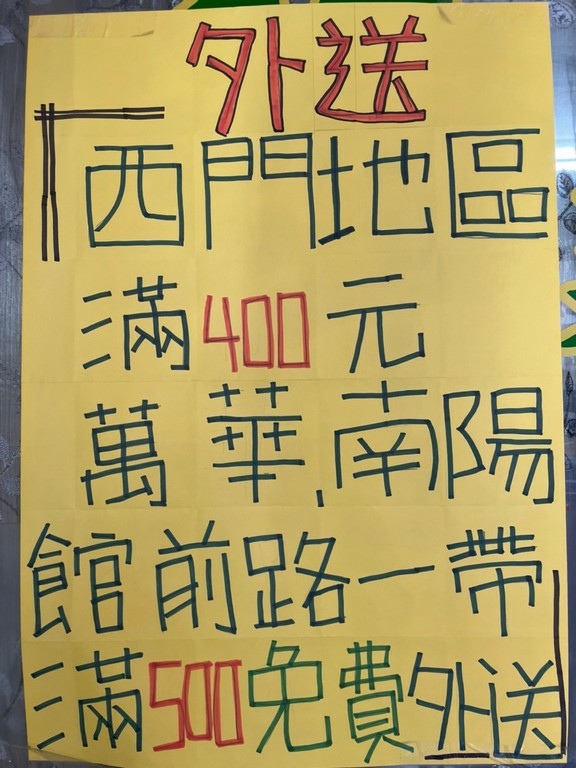 外送
西門地區
滿400元
萬華、南陽
館前路一帶
滿500免費外送